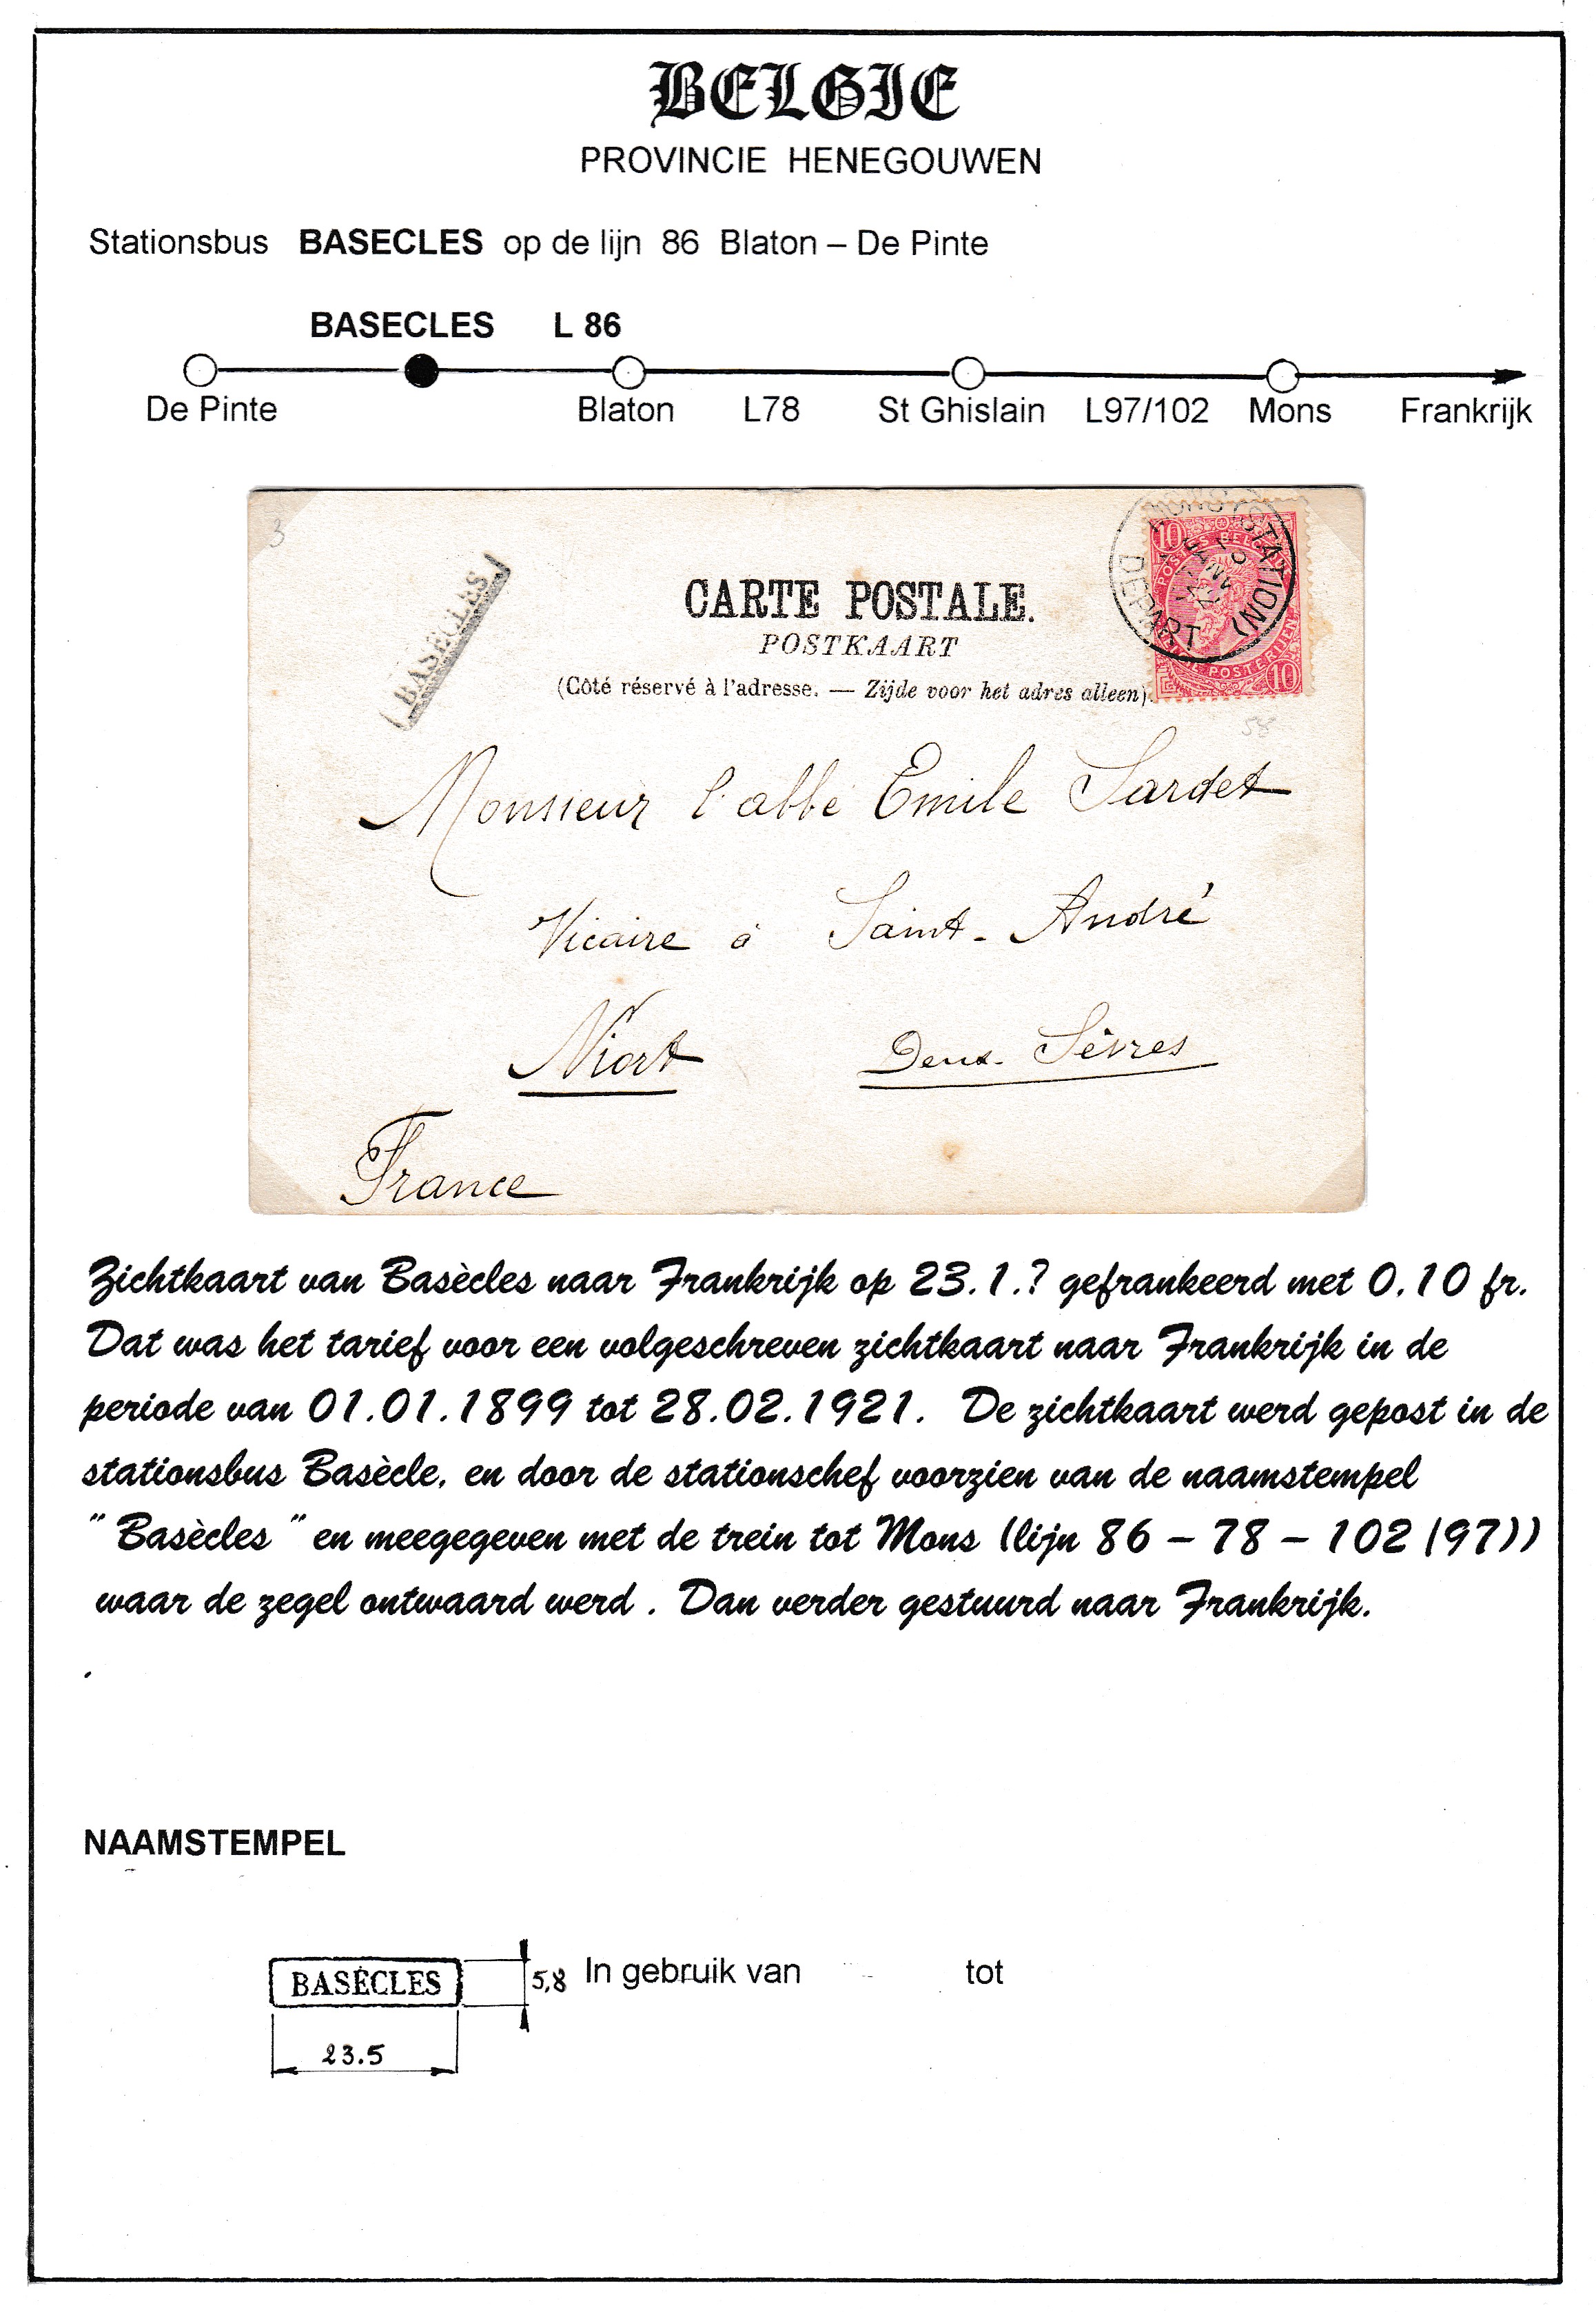 BELGIE
PROVINCIE HENEGOUWEN
Stationsbus BASECLES op de lijn 86 Blaton – De Pinte
BASECLES L 86
De Pinte Blaton L78 St Ghislain L97/102 Mons Frankrijk
3
BASÈCLES
CARTE POSTALE.
POSTKAART
(Côté réservé à l'adresse. — Zijde voor het adres alleen).
MONS (STATION)
DEPART
10
POSTERIJEN
10
58
Monsieur l'abbé Emile Sardet
Vicaire à Saint-André
Niort Deux-Sèvres
France
Zichtkaart van Basècles naar Frankrijk op 23.1.? gefrankeerd met 0.10 fr.
Dat was het tarief voor een volgeschreven zichtkaart naar Frankrijk in de
periode van 01.01.1899 tot 28.02.1921. De zichtkaart werd gepost in de
stationsbus Basècle, en door de stationschef voorzien van de naamstempel
" Basècles " en meegegeven met de trein tot Mons (lijn 86 – 78 – 102 (97))
waar de zegel ontwaard werd . Dan verder gestuurd naar Frankrijk.
.
NAAMSTEMPEL
BASÈCLES 5,8 In gebruik van tot
23.5